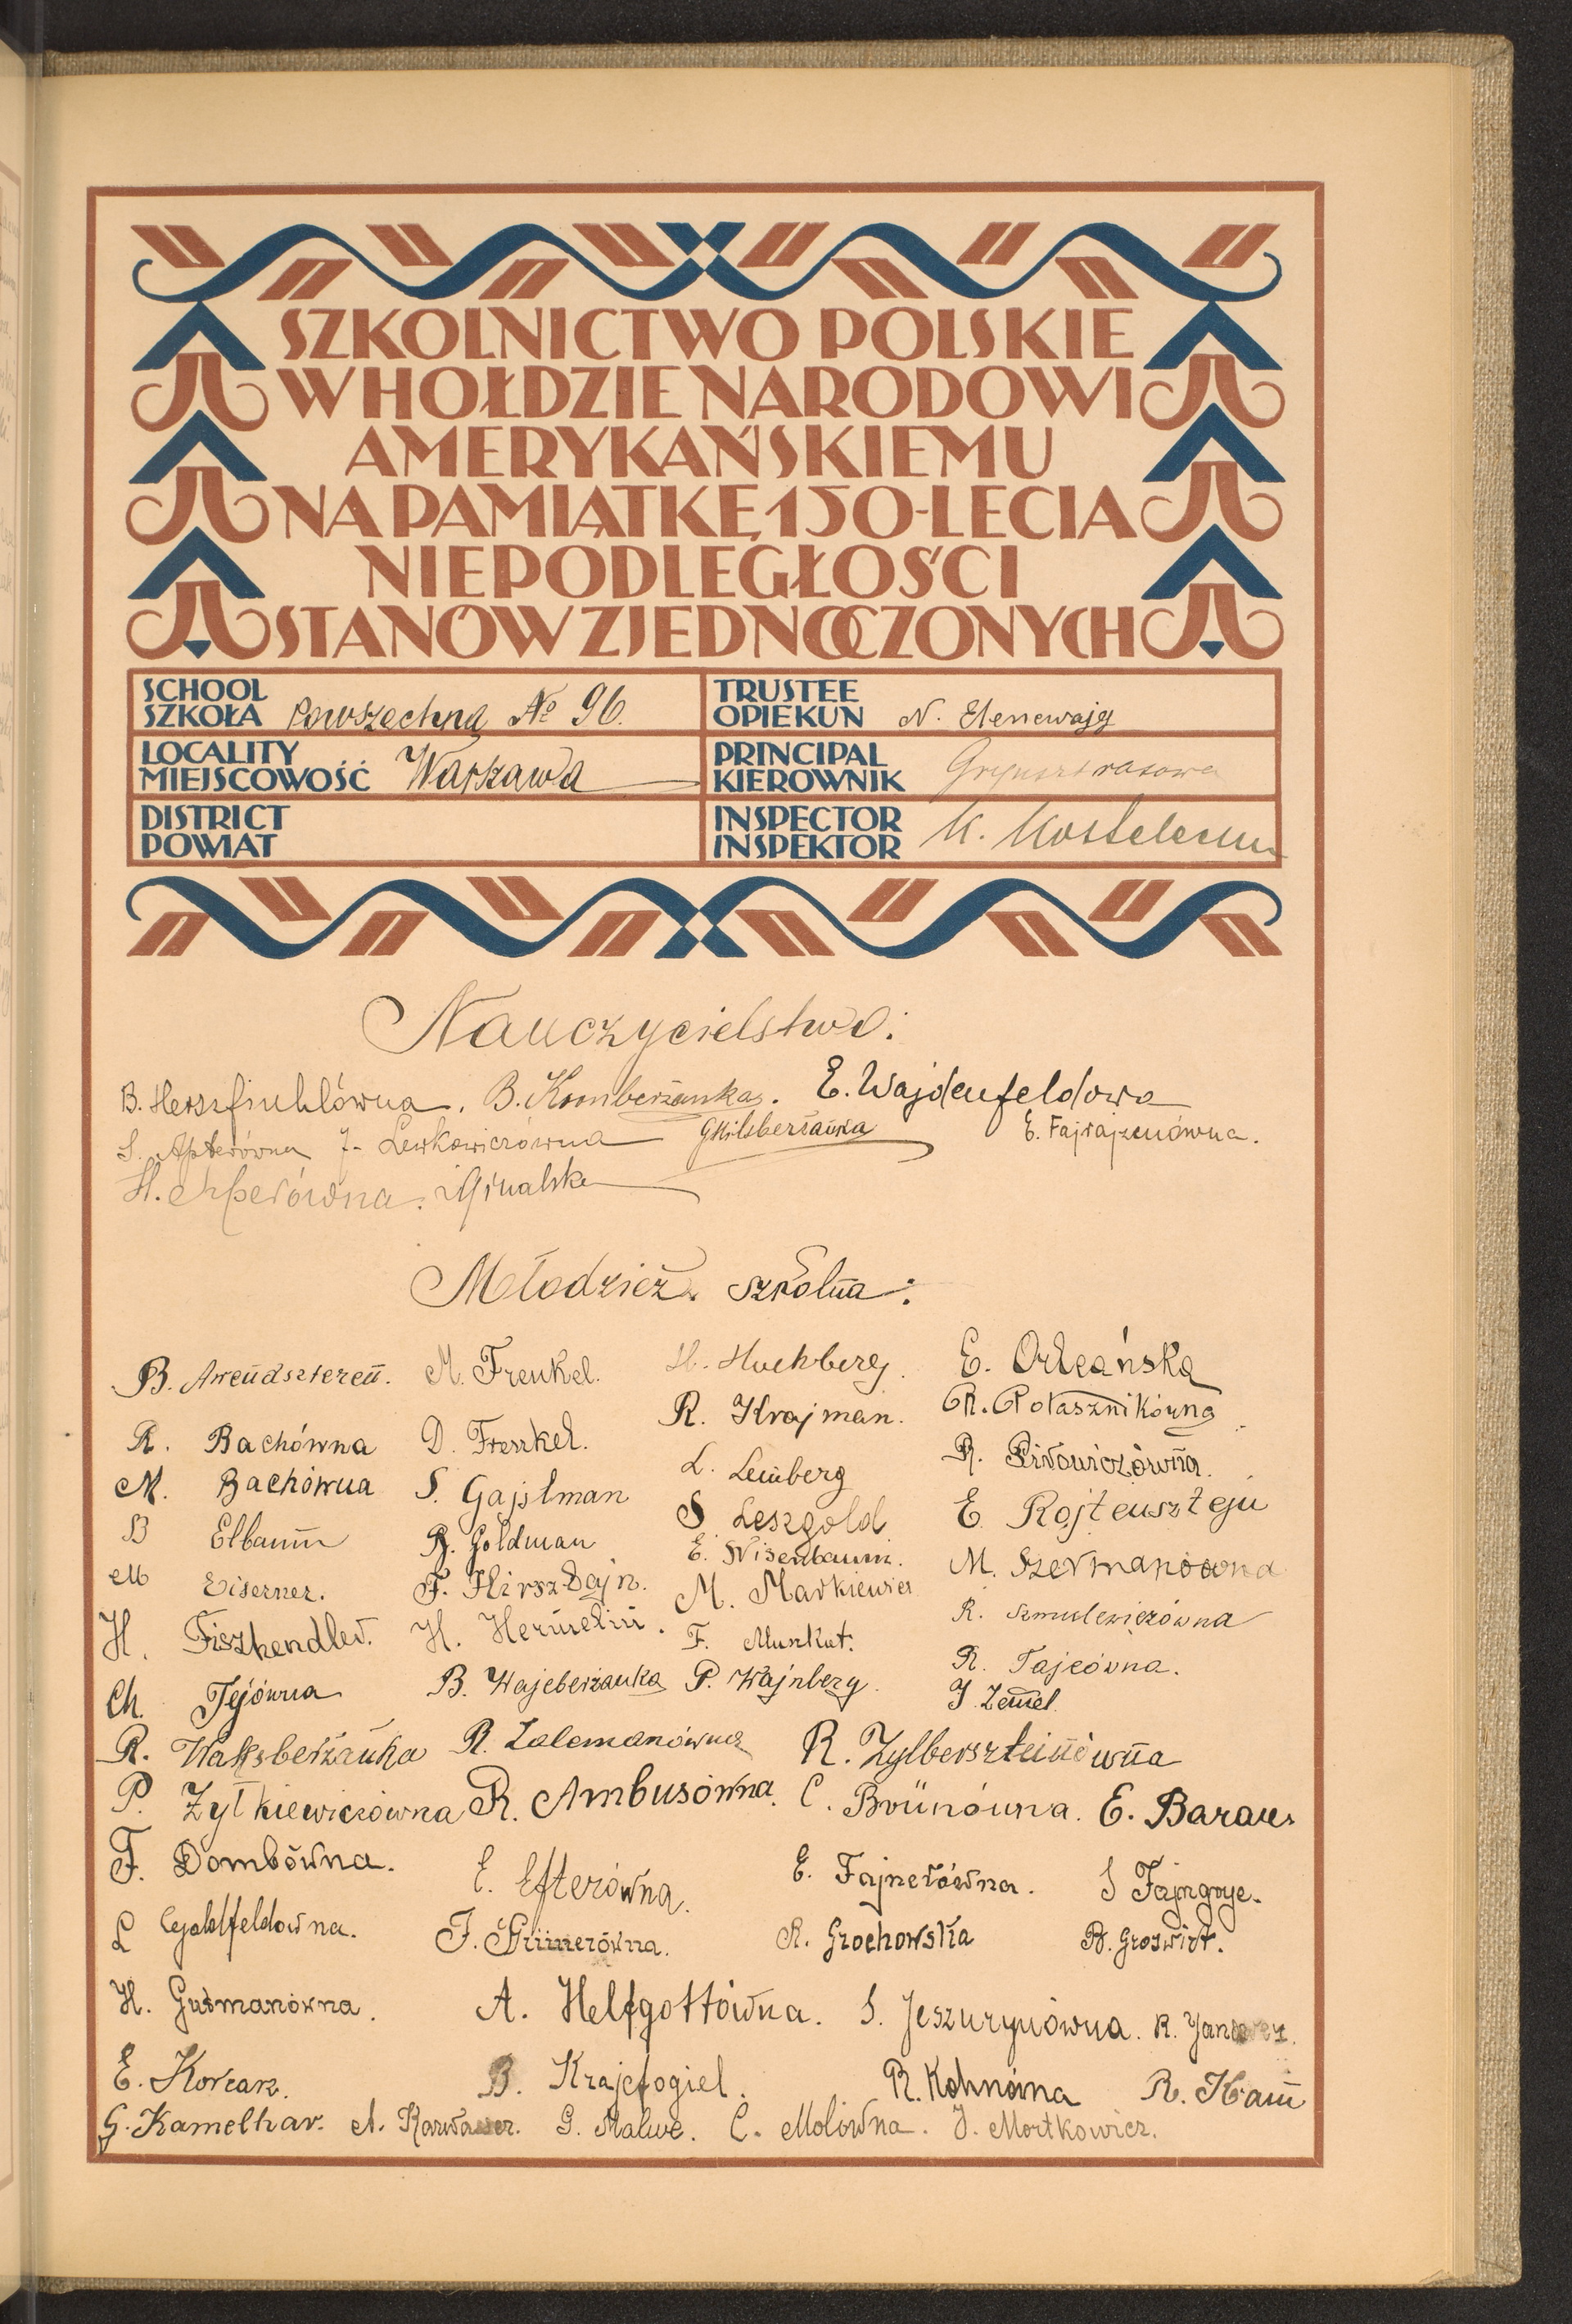 SZKOLNICTWO POLSKIE
W HOŁDZIE NARODOWI
AMERYKAŃSKIEMU
NA PAMIĄTKĘ 150-LECIA
NIEPODLEGŁOŚCI
STANÓW ZJEDNOCZONYCH
SCHOOL
SZKOŁA Powszechna № 96.
TRUSTEE
OPIEKUN N.
LOCALITY
MIEJSCOWOŚĆ Warszawa
PRINCIPAL
KIEROWNIK
DISTRICT
POWIAT
INSPECTOR
INSPEKTOR
Nauczycielstwo:
B. B. E. Wajdenfeldowa
S. Apterówna J. Lewkowiczówna E. Fajrajzenówna.
H.
Młodzież szkolna:
B. Arendszteren. M. Frenkel. H. Hochberg. E. Orleańska
R. Bachówna D. Frenkel. R. Krajman. R. Potasznikówna
M. Bachówna S. Gajstman L. Lemberg R. Piłowiczówna.
B Elbaum R. Goldman S. Leszgold E. Rojtensztejn
M Eisenner. F. Hirszbajn. E. Nisenbaum. M. Szermanówna
H. Fiszhendler. H. Hermelin. M. Markiewicz R. Szmulewiczówna
Ch. Tejówna B. Wajcberżanka F. Muszkat. R. Tajcówna.
P. Wajnberg. J. Zemel.
R. Waksberżanka R. Zalcmanówna R. Zylberszteinówna
P. Żytkiewiczówna R. Ambusówna. C. Brünówna. E. Baran
F. Dombówna. E. Efterówna. E. Fajnerówna. S
L Goldfeldówna. F. Grünerówna. R. Grochowska B. Groswirt.
H. Gutmanówna. A. Helfgottówna. S. Jeszurynówna. R.
E. Korcarz. B. Krajcfogiel. R. Kohnówna R. Kam
G. Kamelhar. A. G. Malwe. C. Molówna. J. Mortkowicz.